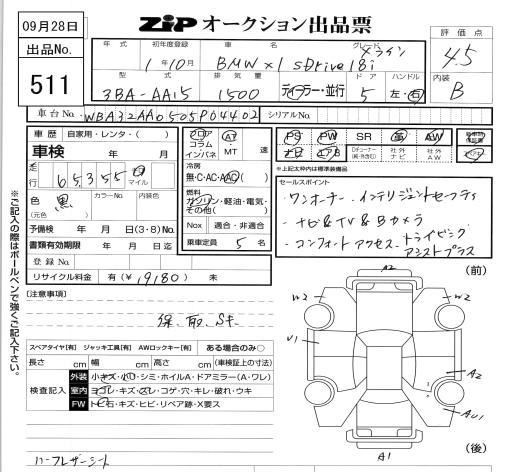 09月28日
ZIP オークション出品票
出品No.
511
年式 初年度登録 車名 グレード 評価点
1年10月 BMW X1 sDrive18i Xライン 4.5
型式 排気量 ドア ハンドル 内装
3BA-AA15 1500 ディーラー・並行 5 左・右 B
車台No. WBA32AA0505P04402 シリアルNo.
車歴 自家用・レンタ・( )
車検 年 月
走行 65355 マイル
色 黒 カラーNo. 内装色
(元色)
予備検 年 月 日(3・8)No.
書類有効期限 年 月 日迄
登録No.
リサイクル料金 有(¥19180) 未
フロア AT 速
コラム
インパネ MT
冷房
無・C・AC・AAC( )
燃料
ガソリン・軽油・電気・
その他( )
Nox 適合・非適合
乗車定員 5 名
PS PW SR 革 AW
ナビ エアB Dチューナー(純・外含む) 社外ナビ 社外AW
※上記太枠内は標準装備品
セールスポイント
・ワンオーナー・インテリジェントセーフティ
・ナビ&TV&Bカメラ
・コンフォートアクセス・ドライビング
アシストプラス
[注意事項]
保、取、Sキー
スペアタイヤ[有] ジャッキ工具[有] AWロックキー[有] ある場合のみ○
長さ cm 幅 cm 高さ cm (車検証上の寸法)
検査記入
外装 小キズ・小凹・シミ・ホイルA・ドアミラー(A・ワレ)
室内 ヨゴレ・キズ・スレ・コゲ・穴・キレ・破れ・ウキ
FW トビ石・キズ・ヒビ・リペア跡・X要ス
ハーフレザーシート
※ご記入の際はボールペンで強くご記入下さい。
(前)
A2
W2
W2
U1
A2
AU1
A1
(後)